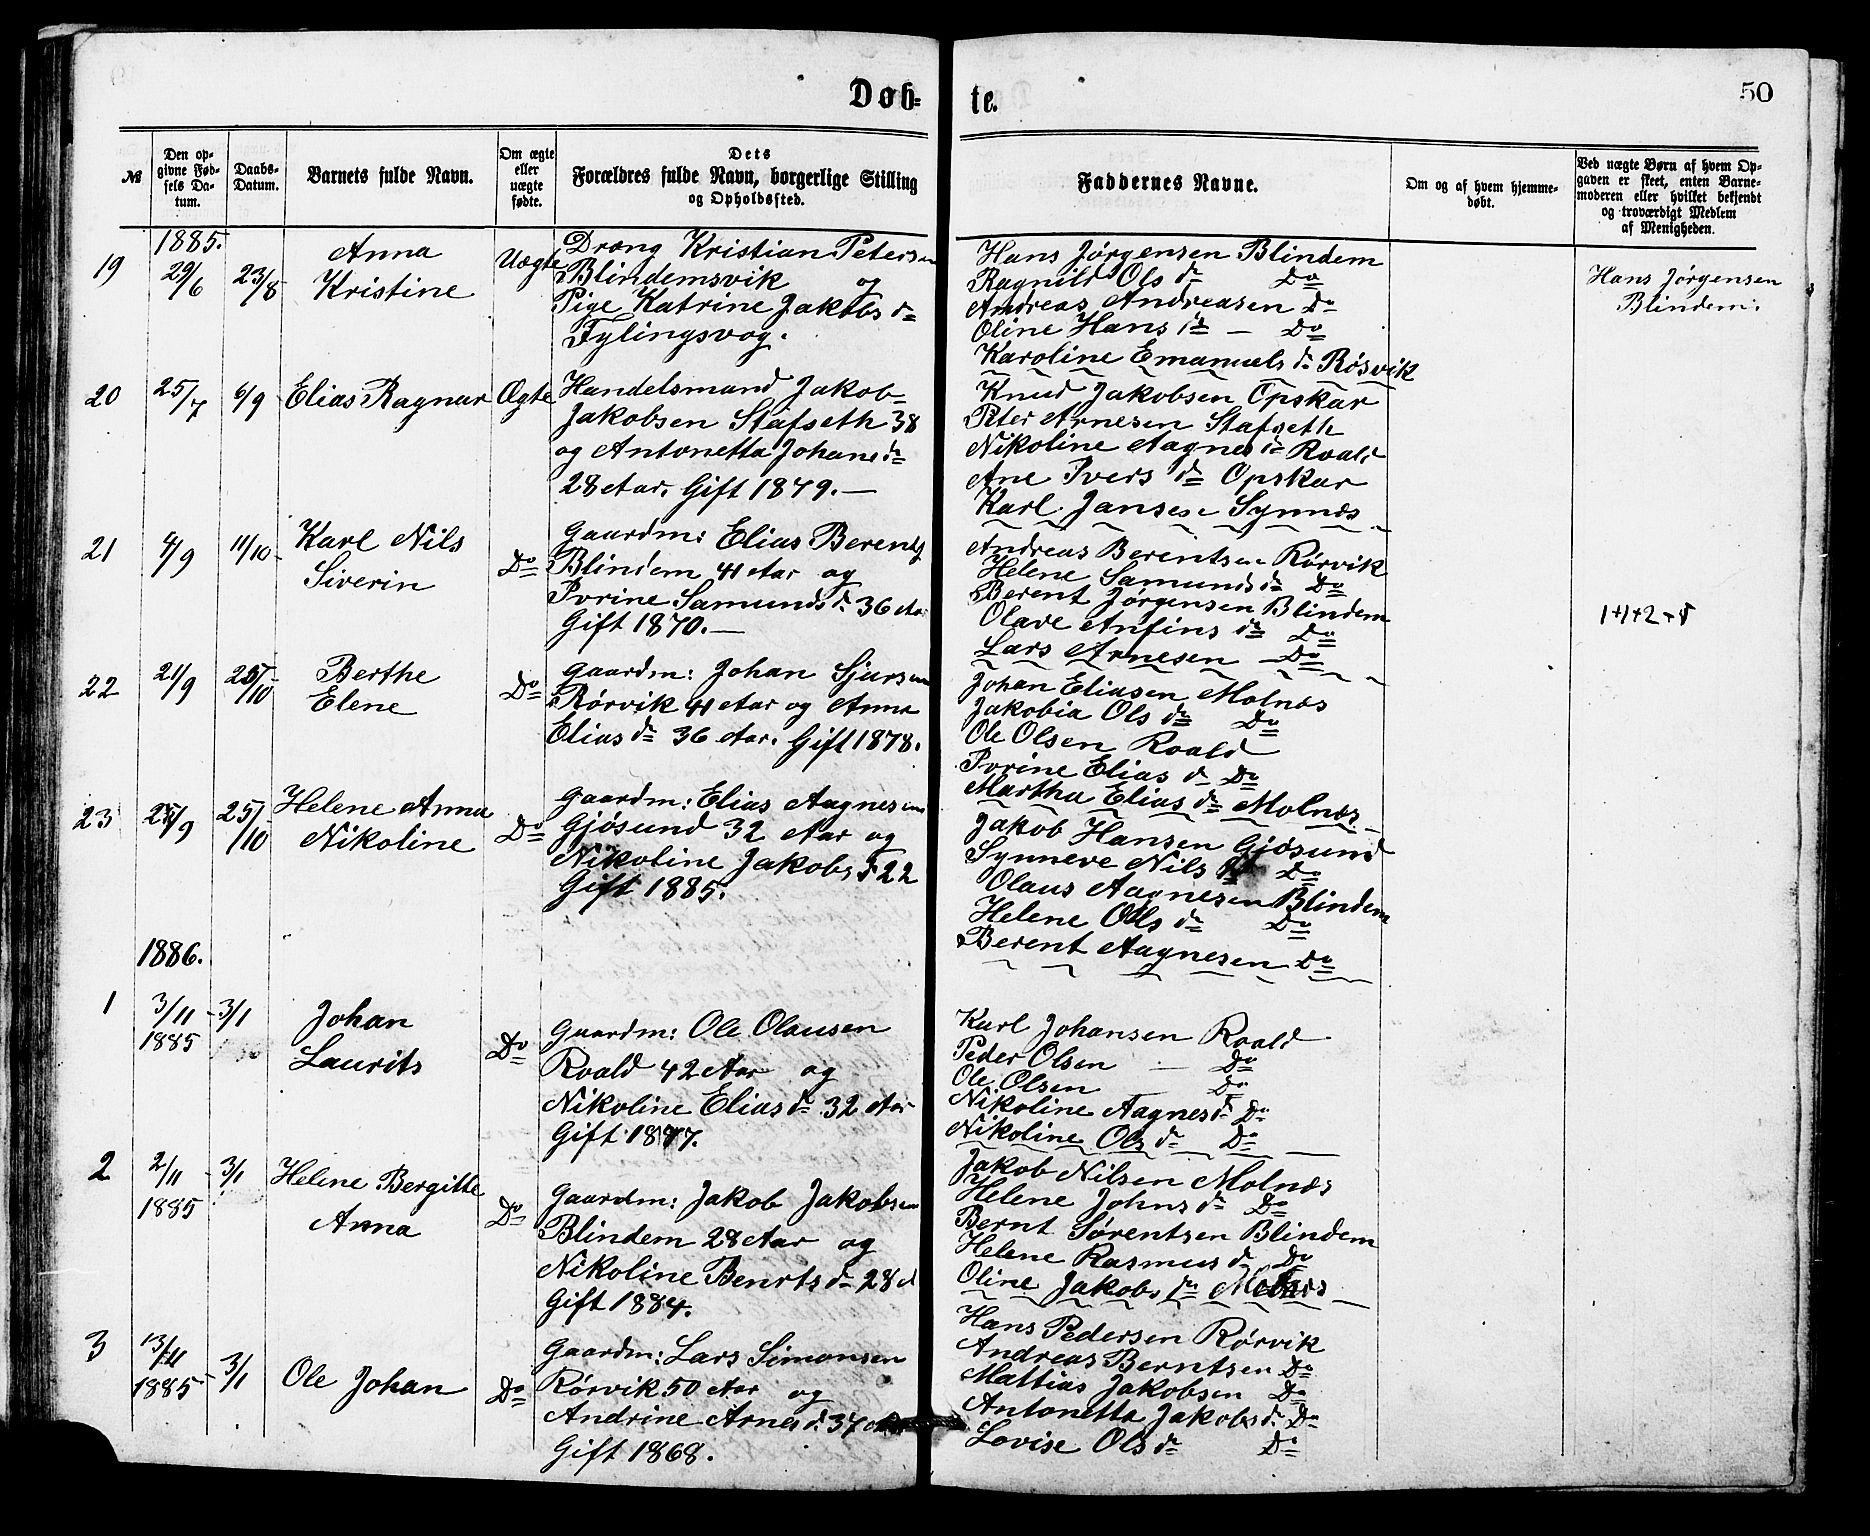 Døb-
te.
50
№
Den op-
givne Fød-
sels Da-
tum.
Daabs-
Datum.
Barnets fulde Navn.
Om ægte
eller
uægte
fødte.
Dets
Forældres fulde Navn, borgerlige Stilling
og Opholdssted.
Faddernes Navne.
Om og af hvem hjemme-
døbt.
Ved uægte Børn af hvem Op-
gaven er skeet, enten Barne-
moderen eller hvilket bekjendt
og troværdigt Medlem
af Menigheden.
1885.
19
29/6
23/8
Anna
Kristine
Uægte
Dreng Kristian Petersen
Blindemsvik og
Pige Katrine Jakobs d.
Fylingsvog.
Hans Jørgensen Blindem
Ragnild Ols d. Do
Andreas Andreasen Do
Oline Hans d. — Do
Karoline Emanuels d. Røsvik
Hans Jørgensen
Blindem:
20
25/7
6/9
Elias Ragnar
Ægte
Handelsmand Jakob
Jakobsen Stafseth 38
og Antonetta Johans d.
28 Aar. Gift 1879. —
Knud Jakobsen Opskar
Peter Arnesen Stafseth
Nikoline Aagnes d. Roald
Ane Ivers d. Opskar
Karl Jansen Synnes
21
4/9
11/10
Karl Nils
Siverin
Do
Gaardm: Elias Berents
Blindem 41 Aar og
Ivrine Samunds d. 36 Aar
Gift 1870. —
Andreas Berentsen Rørvik
Helene Samunds d. Do
Berent Jørgensen Blindem
Olave Anfins d. Do
Lars Arnesen — Do
1+1+2+5
22
21/9
25/10
Berthe
Elene
Do
Gaardm: Johan Sjursen
Rørvik 41 Aar og Anna
Elias d. 36 Aar. Gift 1878.
Johan Eliasen Molnes
Jakobia Ols d. Do
Ole Olsen Roald
Ivrine Elias d. Do
Martha Elias d. Molnes
23
/9
25/10
Helene Anna
Nikoline
Do
Gaardm: Elias Aagnesen
Gjøsund 32 Aar og
Nikoline Jakobs d. 22
Gift 1885.
Jakob Hansen Gjøsund
Synneve Nils d. Do
Olaus Aagnesen Blindem
Helene Ols d. Do
Berent Aagnesen Do
1886.
1
3/11
1885
3/1
Johan
Laurits
Do
Gaardm: Ole Olausen
Roald 42 Aar og
Nikoline Elias d. 32 Aar
Gift 1877.
Karl Johansen Roald
Peder Olsen — Do
Ole Olsen Do
Nikoline Aagnes d. Do
Nikoline Ols d. Do
2
2/11
1885
3/1
Helene Bergitte
Anna
Do
Gaardm: Jakob Jakobsen
Blindem 28 Aar og
Nikoline Benrts d. 28
Gift 1884.
Jakob Nilsen Molnes
Helene Johns d. Do
Bernt Sørentsen Blindem
Helene Rasmus d. Do
Oline Jakobs d. Molnes
3
13/11
1885
3/1
Ole Johan
Do
Gaardm: Lars Simonsen
Rørvik 50 Aar og
Andrine Arnes d. 37
Gift 1868.
Hans Pedersen Rørvik
Andreas Berntsen Do
Mattias Jakobsen Do
Antonetta Jakobs d. Do
Lovise Ols d. Do